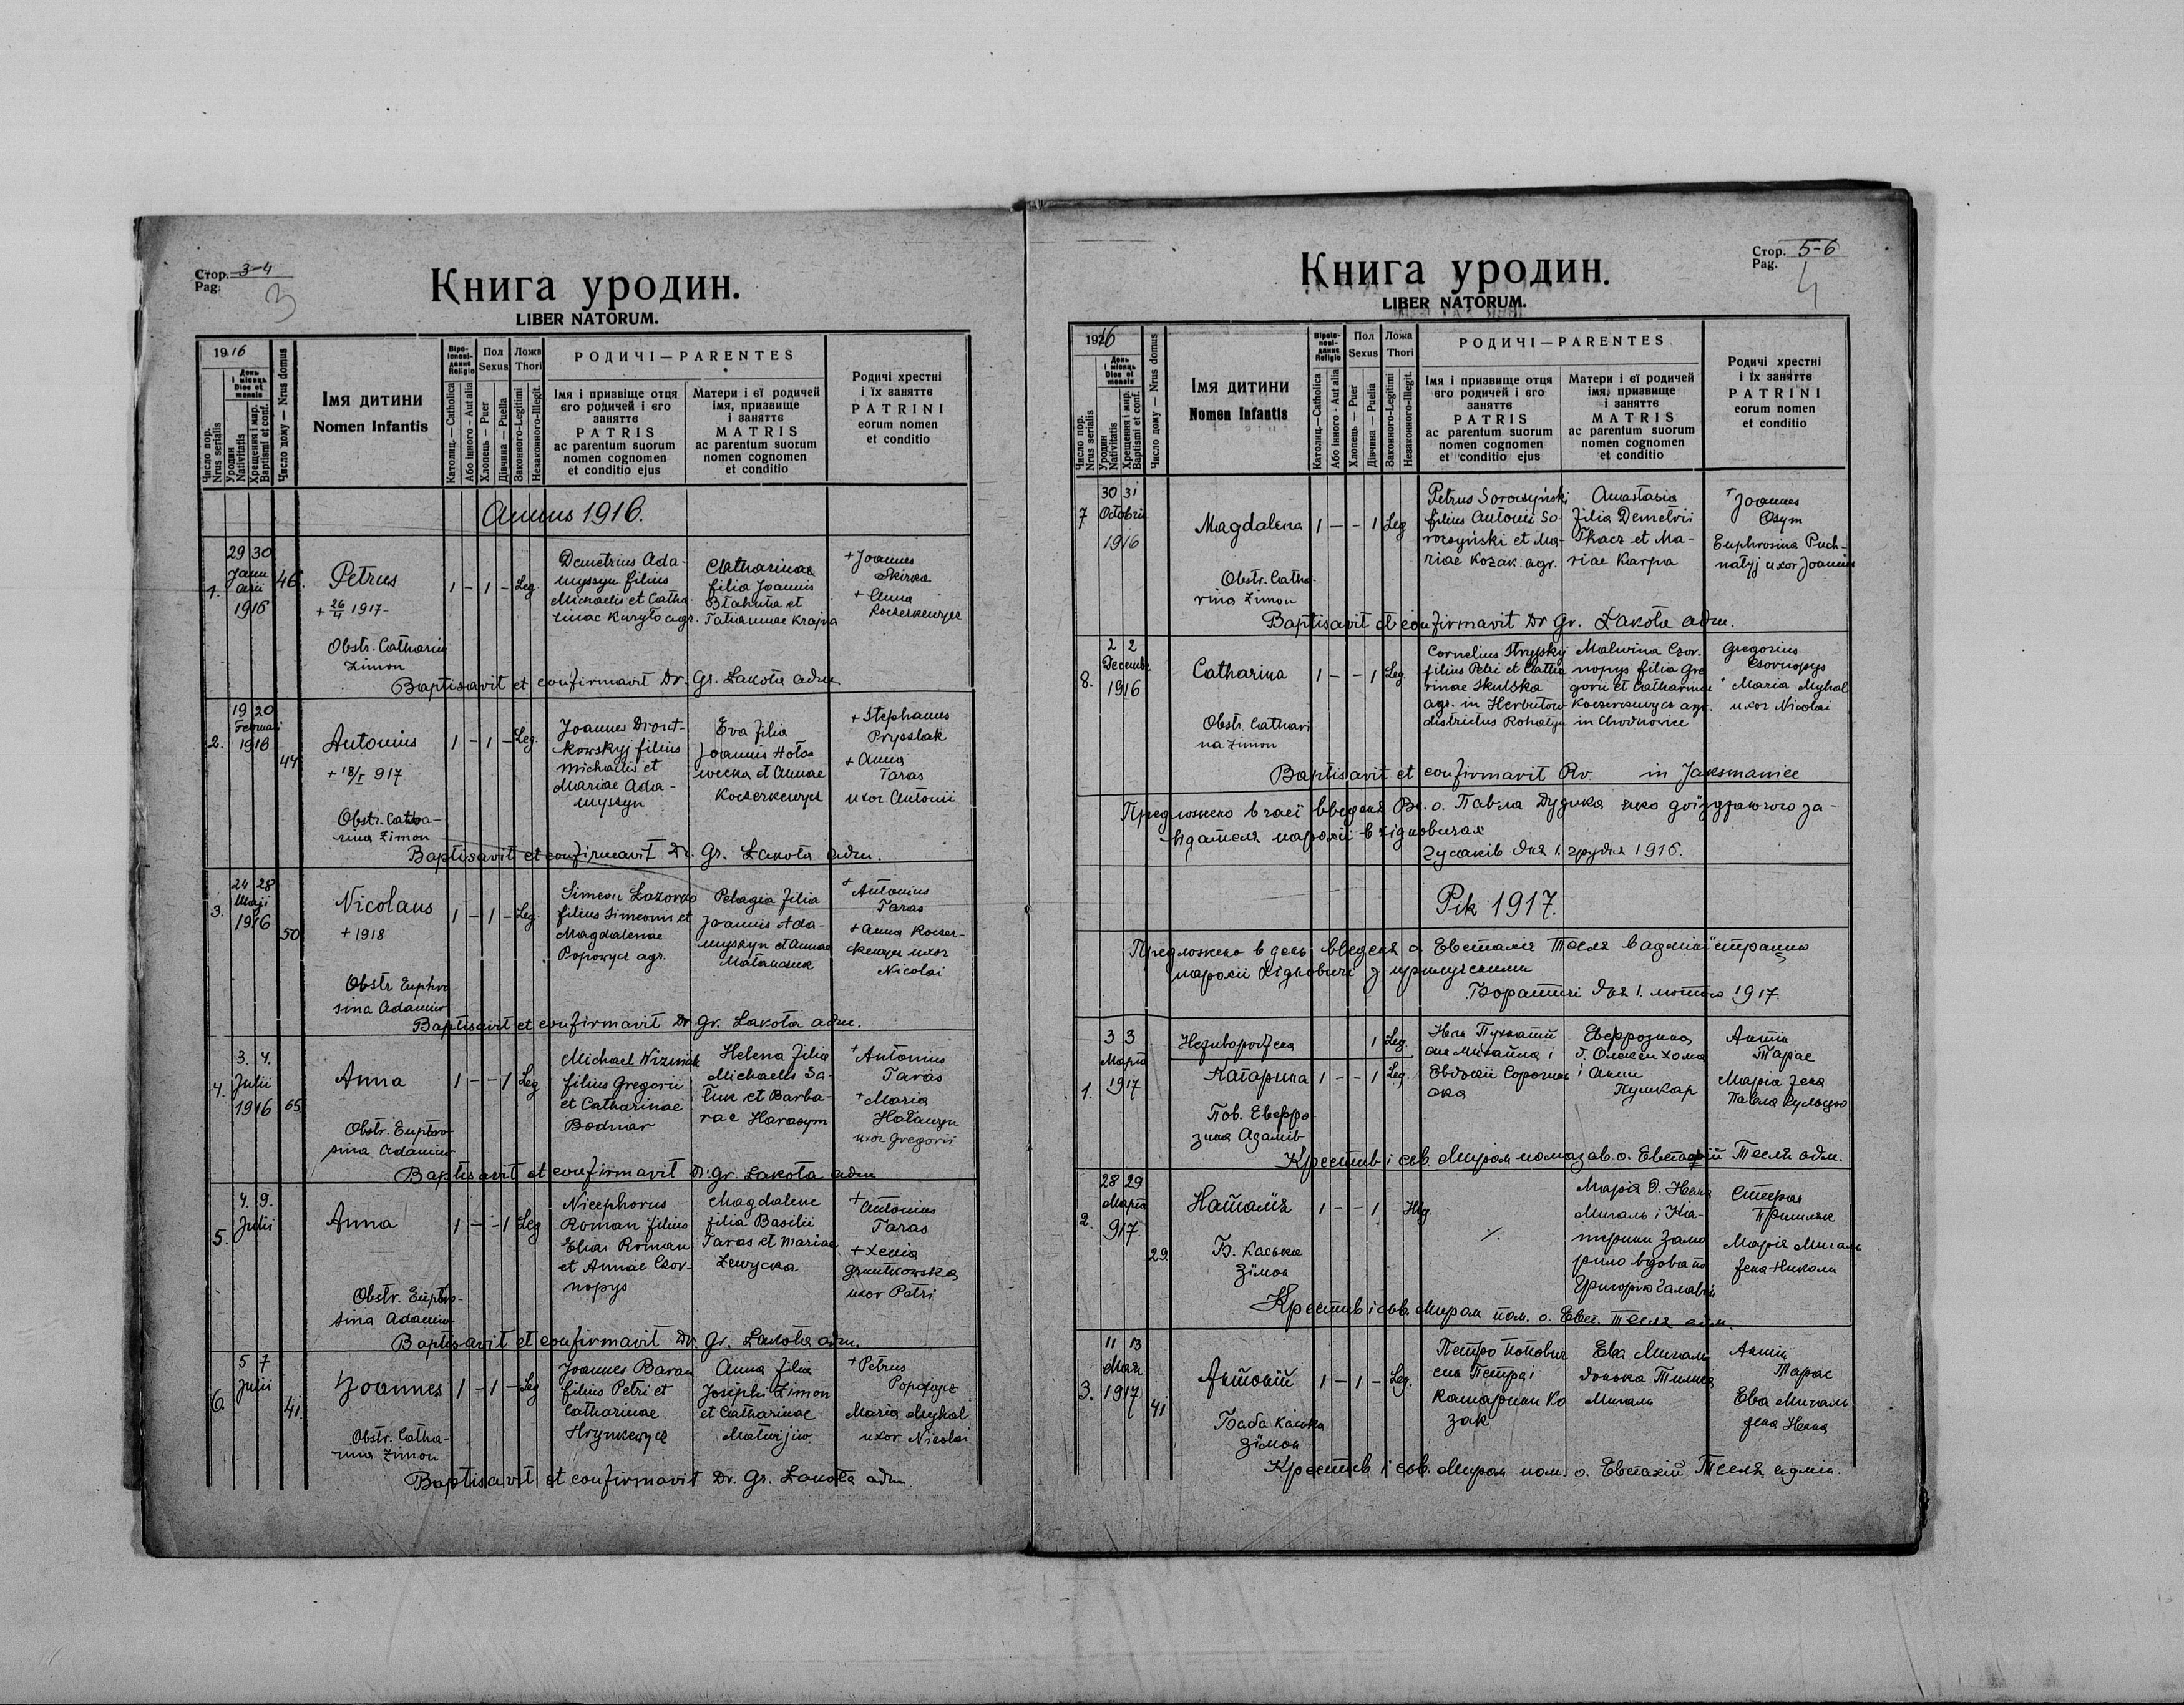 Стор. 3-4
Pag.
3
Книга уродин.
LIBER NATORUM.
1916
Число пор.
Nrus serialis
День
і місяць
Dies et
mensis
Уродин
Nativitatis
Хрещення і мир.
Baptismi et conf.
Число дому — Nrus domus
Імя дитини
Nomen Infantis
Віроісповідання
Religio
Католиц. — Catholica
Або інного - Aut alia
Пол
Sexus
Хлопець — Puer
Дівчина — Puella
Ложа
Thori
Законного-Legitimi
Незаконного-Illegit.
РОДИЧІ — PARENTES
Імя і призвіще отця
єго родичей і єго
заняттє
PATRIS
ac parentum suorum
nomen cognomen
et conditio ejus
Матери і єї родичей
імя, призвище
і заняття
MATRIS
ac parentum suorum
nomen cognomen
et conditio
Родичі хрестні
і їх заняттє
PATRINI
eorum nomen
et conditio
Annus 1916.
1.
29 30
Januarii
1916
46.
Petrus
+ 26/II 1917-
Obstr. Catharina
Zimon
1 - 1 - Leg.
Demetrius Ada-
myszyn filius
Michaelis et Catha-
rinae Kuryło agr.
Catharinae
filia Joannis
Błahuta et
Tatiannae Krajna
+ Joannes
Skirka
+ Anna
Koczerkewycz
Baptisavit et confirmavit Dr. Gr. Łakota adm.
2.
19 20
Februarii
1916
44
Antonius
+ 18/I 917
Obstr. Catha-
rina Zimon
1 - 1 - Leg.
Joannes Dront-
kowskyj filius
Michaelis et
Mariae Ada-
myszyn
Eva filia
Joannis Hoło-
wecka et Annae
Koczerkewycz
+ Stephanus
Pryszlak
+ Anna
Taras
uxor Antonii
Baptisavit et confirmavit Dr. Gr. Łakota adm.
3.
24 28
Maji
1916
50
Nicolaus
+ 1918
Obstr Euphro
sina Adamiw
1 - 1 - Leg.
Simeon Łazorko
filius Simeonis et
Magdalenae
Popowycz agr.
Pelagia filia
Joannis Ada-
myszyn et Annae
+ Antonius
Taras
+ Anna Koczer-
kewycz uxor
Nicolai
Baptisavit et confirmavit Dr Gr. Łakota adm.
4.
3. 4.
Julii
1916
65
Anna
Obstr. Euphro-
sina Adamiw
1 - - 1 Leg
Michael
filius Gregorii
et Catharinae
Bodnar
Helena filia
Michaelis Sa-
et Barba-
rae Harasym
+ Antonius
Taras
+ Maria
Hałaczyn
uxor Gregorii
Baptisavit et confirmavit Dr. Gr. Łakota adm
5.
4. 9.
Julii
Anna
Obstr. Euphro-
sina Adamiw
1 - - 1 Leg
Nicephorus
Roman filius
Eliae Roman
et Annae Czor-
nopys
Magdalene
filia Basilii
Taras et Mariae
Lewycka
+ Antonius
Taras
+ Xenia
Gruntkowska
uxor Petri
Baptisavit et confirmavit Dr. Gr. Łakota adm.
6.
5 7
Julii
41.
Joannes
Obstr. Catha-
rina Zimon
1 - 1 - Leg
Joannes Baran
filius Petri et
Catharinae
Hrynkewycz
Anna filia
Josiphi Zimon
et Catharinae
Matwijiw.
+ Petrus
Popowycz
Maria Myhal
uxor Nicolai
Baptisavit et confirmavit Dr. Gr. Łakota adm.
Стор. 5-6
Pag.
4
Книга уродин.
LIBER NATORUM.
1916
Число пор.
Nrus serialis
День
і місяць
Dies et
mensis
Уродин
Nativitatis
Хрещення і мир.
Baptismi et conf.
Число дому — Nrus domus
Імя дитини
Nomen Infantis
Віроісповідання
Religio
Католиц. — Catholica
Або інного - Aut alia
Пол
Sexus
Хлопець — Puer
Дівчина — Puella
Ложа
Thori
Законного-Legitimi
Незаконного-Illegit.
РОДИЧІ — PARENTES
Імя і призвище отця
єго родичей і єго
заняттє
PATRIS
ac parentum suorum
nomen cognomen
et conditio ejus
Матери і єї родичей
імя, призвище
і заняття
MATRIS
ac parentum suorum
nomen cognomen
et conditio
Родичі хрестні
і їх заняттє
PATRINI
eorum nomen
et conditio
7
30 31
Octobris
1916
Magdalena
Obstr. Catha-
rina Zimon
1 - - 1 Leg
Petrus Soroczyński
filius Antonii So-
roczyński et Ma-
riae Kozak. agr.
Anastasia
filia Demetrii
Tkacz et Ma-
riae Karpa
+ Joannes
Osym
Euphrosina Puch-
natyj uxor Joannis
Baptisavit et confirmavit Dr Gr. Łakota adm.
8.
2 2
Decembr.
1916
Catharina
Obstr. Cathari
na Zimon
1 - - 1 Leg.
Cornelius Stryjskyj
filius Petri et Catha
rinae Skulska
agr. in Herbutow
districtus Rohatyn
Malwina Czor-
nopys filia Gre
gorii et Catharinae
Koczerkewycz agr.
in Chodnowice
Gregorius
Czornopys
Maria Myhal
uxor Nicolai
Baptisavit et confirmavit Rv. in Jaksmanice
Предложено в часї введеня Вп. о. Павла Дудика яко доїзджаючого за-
відателя парохії в
Гусаків дня 1. грудня 1916.
Рік 1917.
Предложено в день введеня о. Евстахія Тесля в адміністрацию
парохії з прилученими
дня 1. лютого 1917.
1.
3 3
Марта
1917
Неживороджена
1 Leg.
Катарина
Пов. Евфро-
зина Адамів
1 - - 1 Leg.
Іван Пухнатий
син Михайла і
Евдокії
Евфрозина
д. Олекси Хома
і Анни
Пушкар
Антін
Тарас
Марія жена
Павла
Крестив і св. Миром помазав о. Евстахій Тесля адм.
2.
28 29
Марта
917.
29
Наталія
Б. Каська
Зімон
1 - - 1 Неg.
Марія д. Івана
Мигаль і Ка-
терини
вдова по
Григорію
Стефан
Пришляк
Марія Мигаль
жена Николи
Крестив і св. Миром пом. о. Евст. Тесля адм.
3.
11 13
Мая
1917
41
Антоній
Баба Каська
Зімон
1 - 1 - Leg.
Петро Попович
син Петра і
Катарини Ко
зак
Ева Мигаль
донька
Мигаль
Антін
Тарас
Ева Мигаль
жена Івана
Крестив і св. Миром пом. о. Евстахій Тесля, адмін.